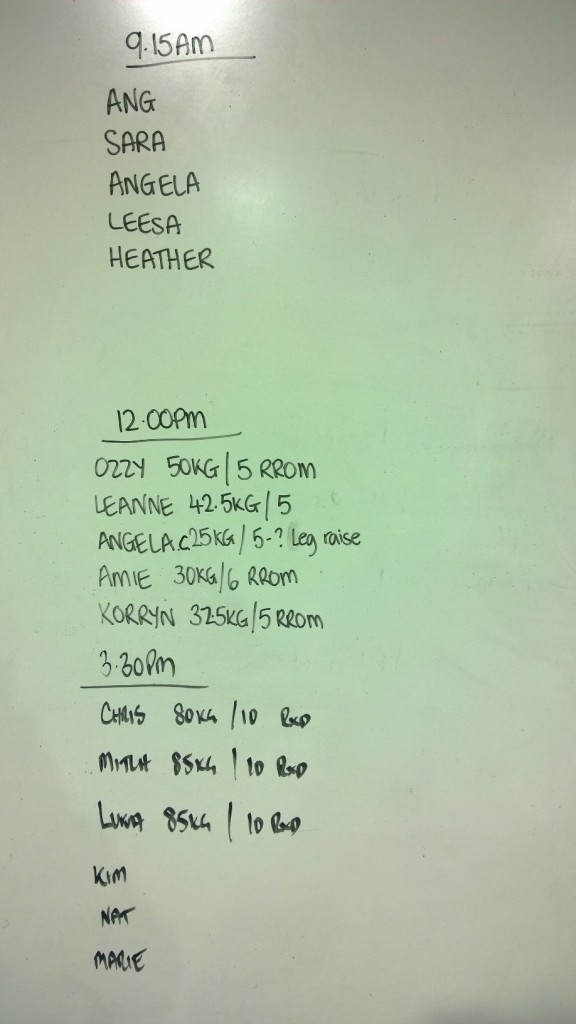 9.15AM
ANG
SARA
ANGELA
LEESA
HEATHER
12.00PM
OZZY 50KG/5 RROM
LEANNE 42.5KG/5
ANGELA.C 25KG/5-? Leg raise
AMIE 30KG/6 RROM
KORRYN 32.5KG/5 RROM
3.30Pm
CHRIS 80KG/10 RXD
MITCH 85KG/10 RXD
85KG/10 RXD
KIM
NAT
MARIE